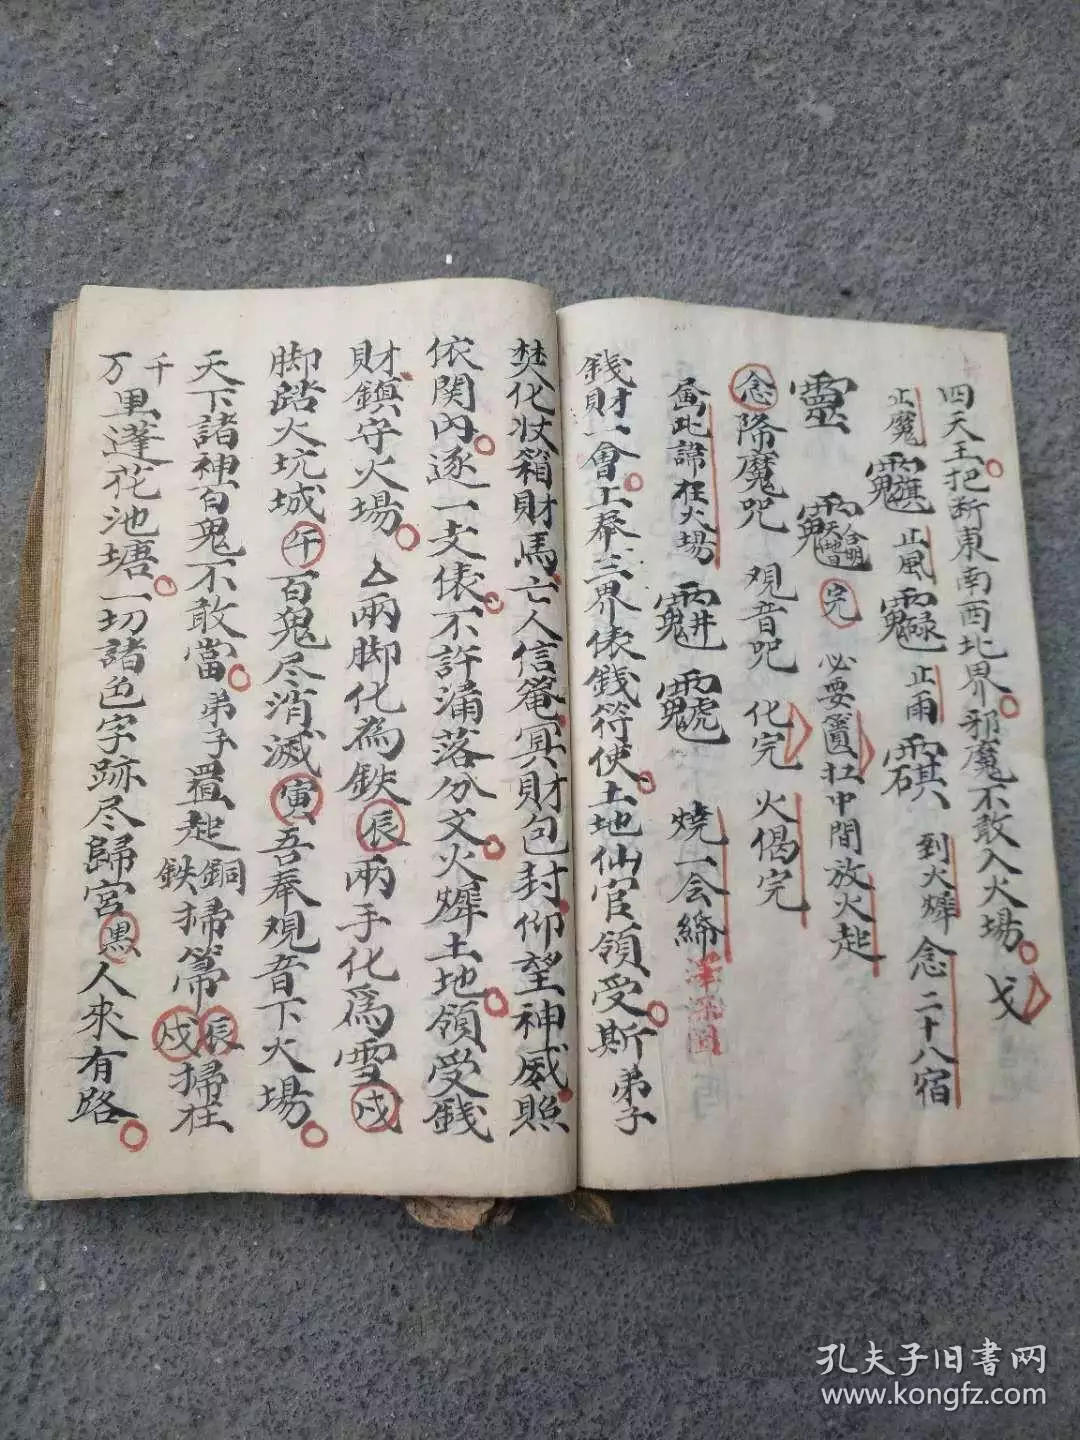 四天王把断東南西北界邪魔不敢入火場 戈
止魔 止風 止雨 到火墀念二十八宿
靈 合明 完 必要置扛中間放火起
念降魔咒 观音咒 化完 火偈完
此諱在火場 燒一会締
錢財一會上奉三界俵錢符使土地仙官領受斯弟子
焚化妆箱財馬亡人信菴冥財包封仰望神威照
依関内逐一交俵不許漏落分文火墀土地領受錢
財鎮守火場厶兩脚化為鉄辰兩手化爲雪戌
脚踏火坑城午百鬼尽消滅寅吾奉观音下火場
天下諸神百鬼不敢當弟子置起銅鉄掃箒辰戌掃在
千万里蓬花池塘一切諸色字跡尽歸宮黒人來有路
孔夫子旧書网
www.kongfz.com